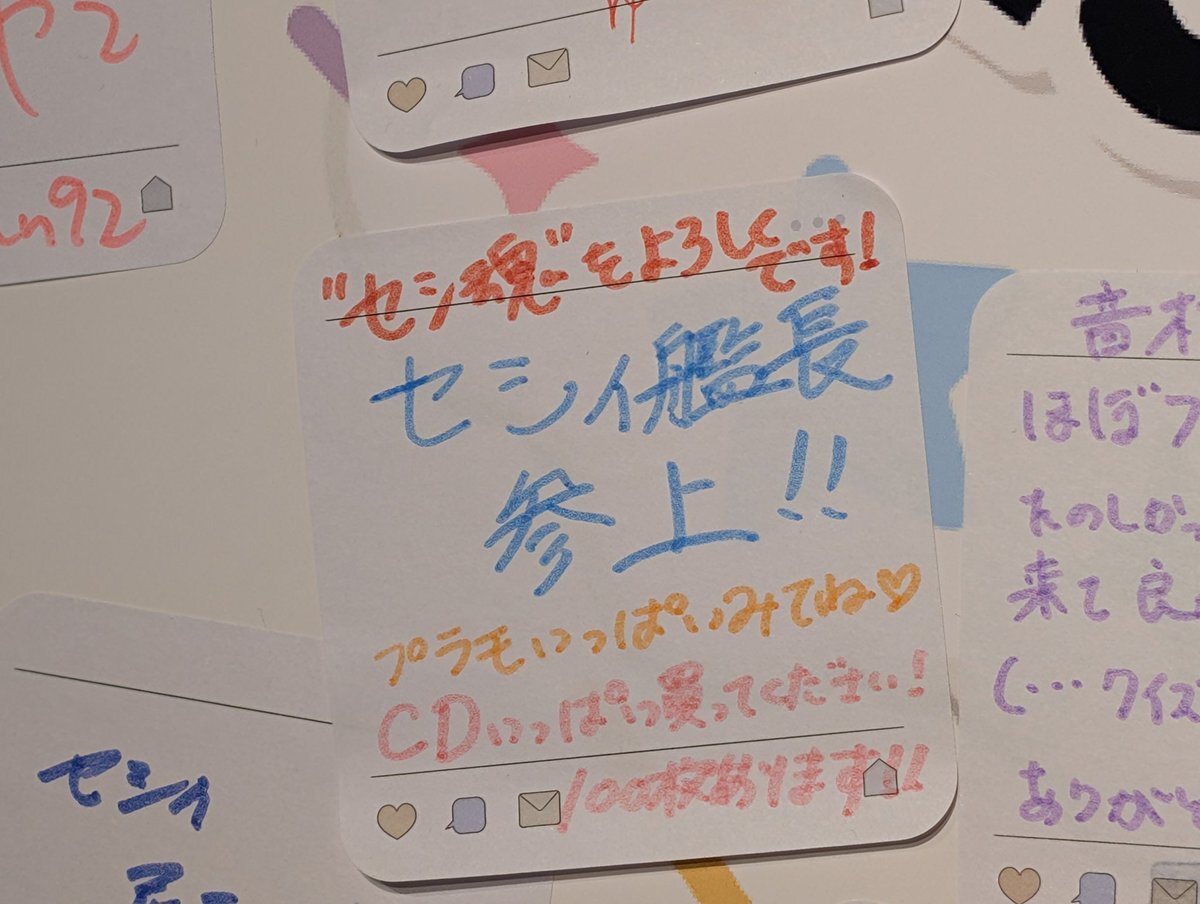 n92
"セシ魂"をよろしく
です!
セシィ艦長
参上!!
プラモいっぱいみてね♡
CDいっぱい買ってください!
100枚あります!!
セシィ
音オ
ほぼフ
たのしか
来て良
(…クイズ
ありがと